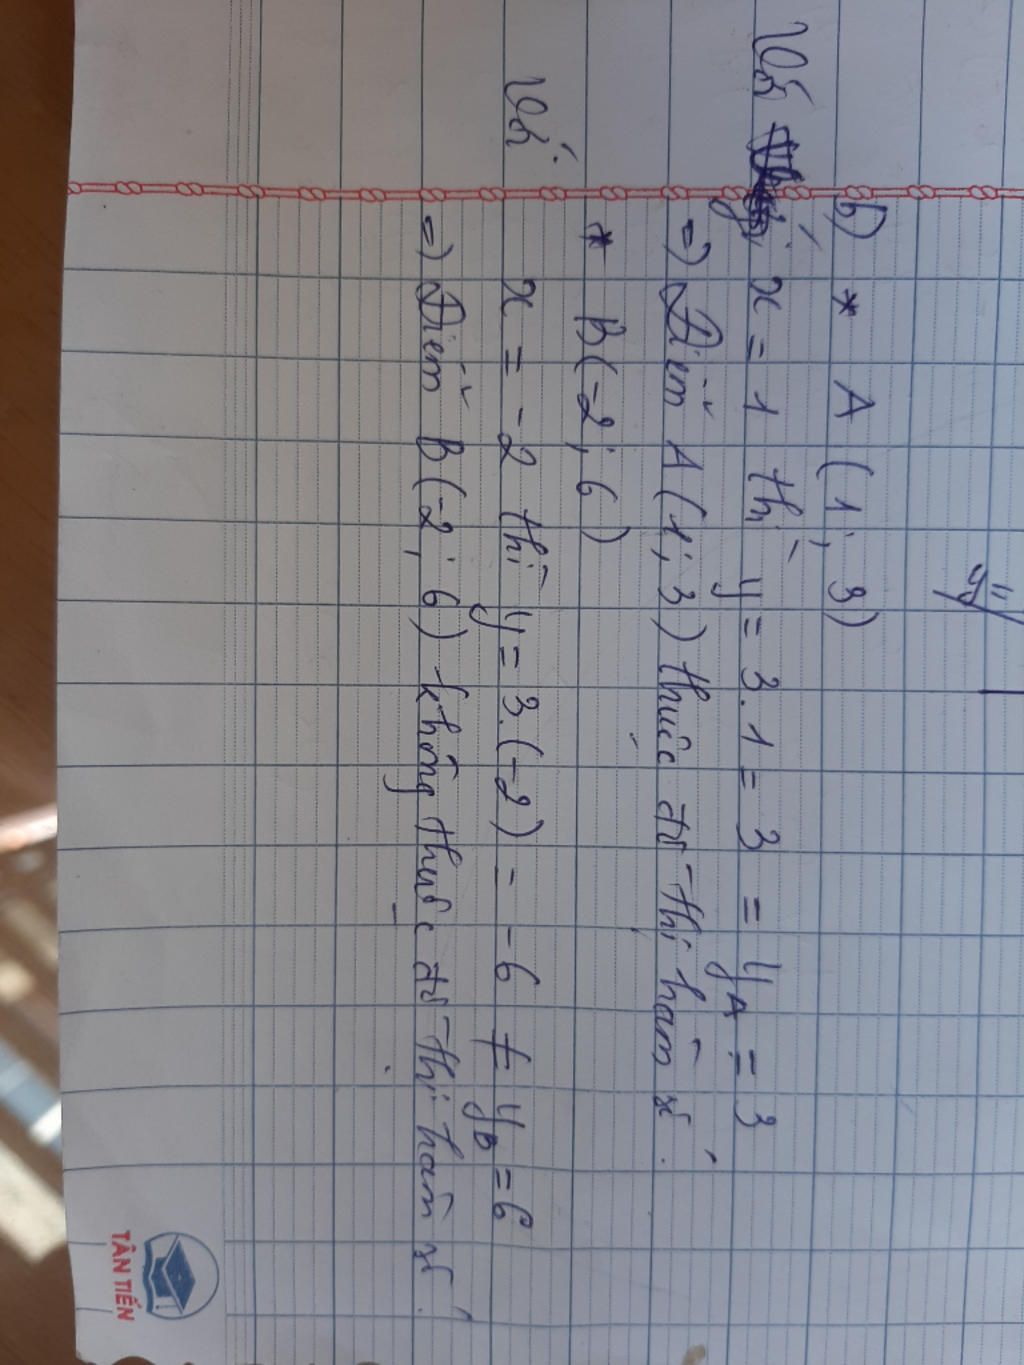 b) * A (1; 3)
Với x = 1 thì y = 3.1 = 3 = yA = 3
=) Điểm A (1; 3) thuộc đồ thị hàm số.
* B (-2; 6)
Với x = -2 thì y = 3.(-2) = -6 ≠ yB = 6
=) Điểm B (-2; 6) không thuộc đồ thị hàm số.
TÂN TIẾN